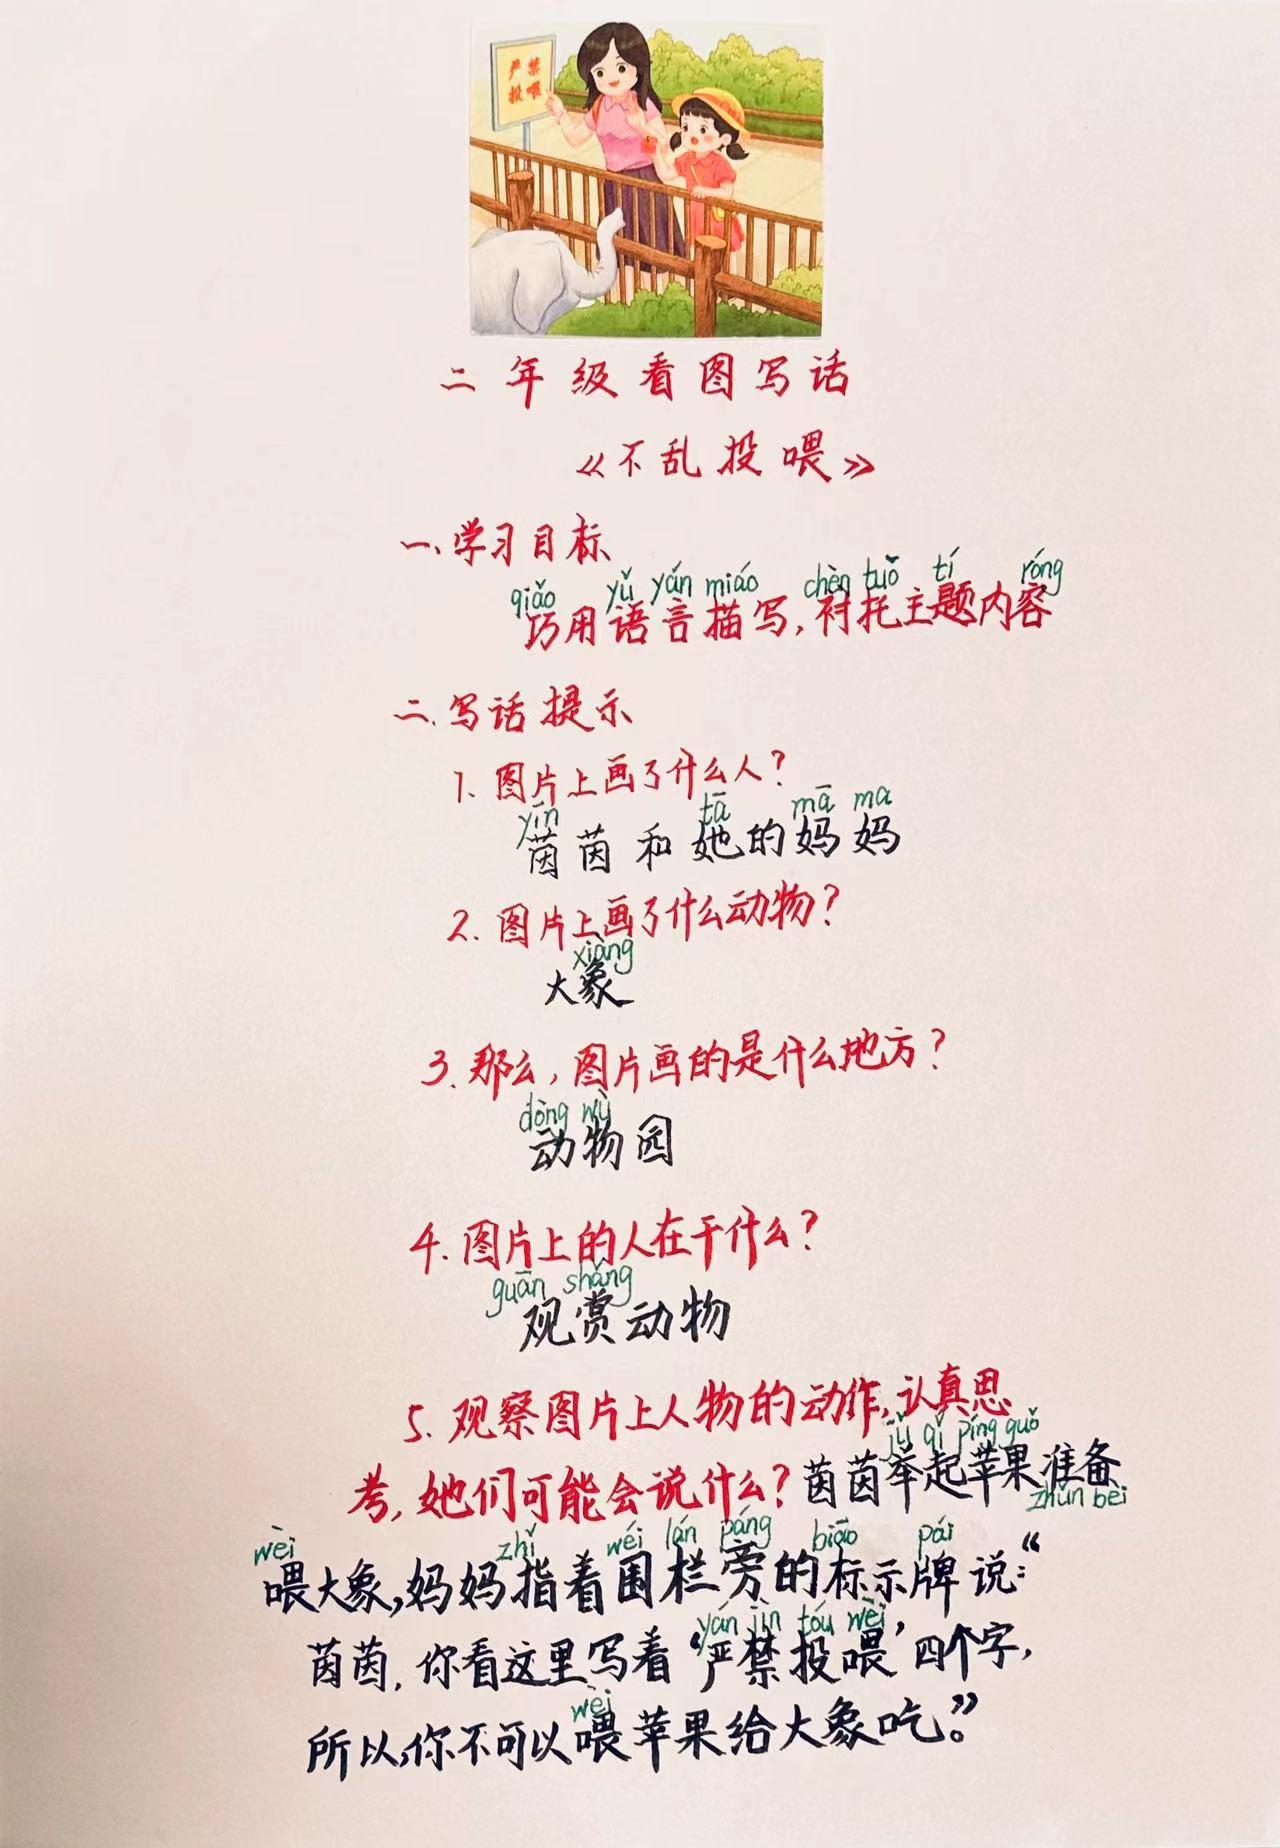 严禁
投喂
二年级看图写话
《不乱投喂》
一、学习目标
qiǎo yǔ yán miáo chèn tuō tí róng
巧用语言描写，衬托主题内容
二、写话提示
1. 图片上画了什么人？
yīn tā mā ma
茵茵和她的妈妈
2. 图片上画了什么动物？
xiàng
大象
3. 那么，图片画的是什么地方？
dòng wù
动物园
4. 图片上的人在干什么？
guān shǎng
观赏动物
5. 观察图片上人物的动作，认真思
jǔ qǐ píng guǒ
考，她们可能会说什么？茵茵举起苹果准备
zhǔn bèi
wèi zhǐ wéi lán páng biāo pái
喂大象，妈妈指着围栏旁的标示牌说：“
yán jìn tóu wèi
茵茵，你看这里写着‘严禁投喂’四个字，
wèi
所以，你不可以喂苹果给大象吃。”